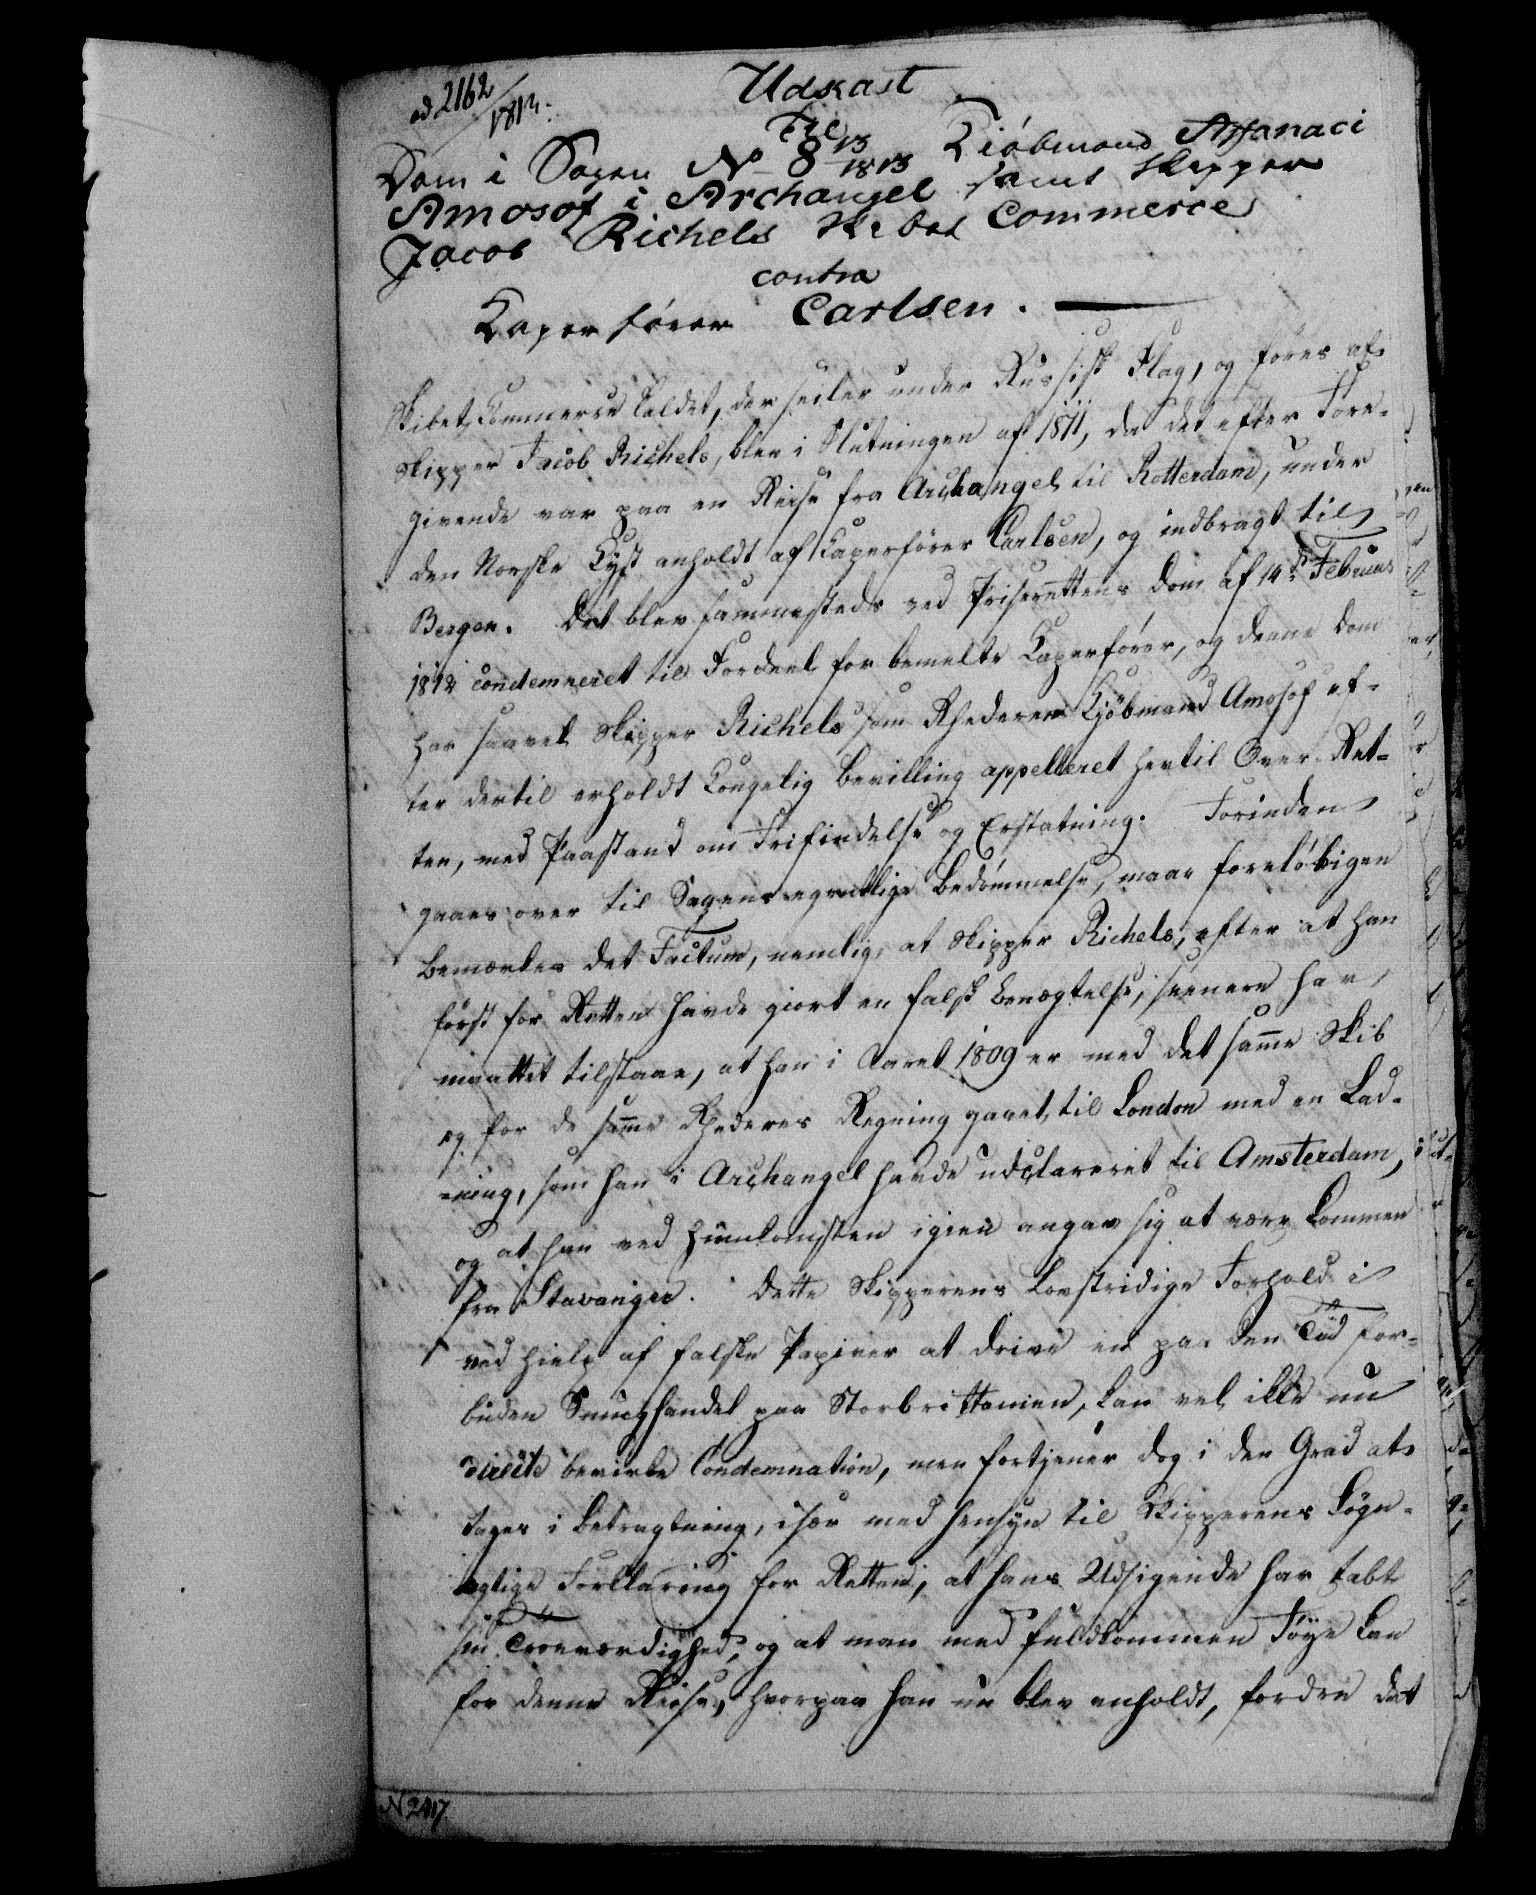 ad 2162/1813.
Udskast
Til
Dom i Sagen No 8 13/1813 Kiöbmand Affanaci
Amosof i Archangel samt Skipper
Jacob Richels Skibet Commerce
contra
Kaperfører Carlsen.
Skibet Commerce kaldet, der seiler under Russisk Flag, og føres af
Skipper Jacob Richels, blev i Slutningen af 1811, da det efter Fore-
givende var paa en Reise fra Archangel til Rotterdam, under
den Norske Kyst anholdt af Kaperfører Carlsen, og indbragt til
Bergen. Det blev sammesteds ved Priserettens Dom af 14de Februar
1812 condemneret til Fordeel for bemelte Kaperfører, og denne Dom
har saavel Skipper Richels som Rhederen Kjöbmand Amosof ef-
ter dertil erholdt Kongelig Bevilling appelleret hertil Over-Ret-
ten, med Paastand om Frifindelse og Erstatning. Forinden
gaaes over til Sagens egentlige Bedømmelse, maae foreløbigen
bemærkes det Factum, nemlig, at Skipper Richels, efter at han
først for Retten havde giort en falsk Benægtelse, seenere har
maattet tilstaae, at han i Aaret 1809 er med det samme Skib
og for de samme Rhederes Regning gaaet til London med en Lad-
ning, som han i Archangel havde udclareret til Amsterdam,
og at han ved Hiemkomsten igien angav sig at være kommen
fra Stavanger. Dette Skipperens Lovstridige Forhold i
ved Hielp af falske Papirer at drive en paa den Tiid for-
buden Smughandel paa Storbrittanien, kan vel ikke nu
directe bevirke Condemnation, men fortjener dog i den Grad at
tages i Betragtning, især med Hensyn til Skipperens Løgn-
agtige Forklaring for Retten, at hans Udsigende har tabt
sin Troeværdighed, og at man med fuldkommen Føye kan
for denne Reise, hvorpaa han nu blev anholdt, fordre det
N 2417